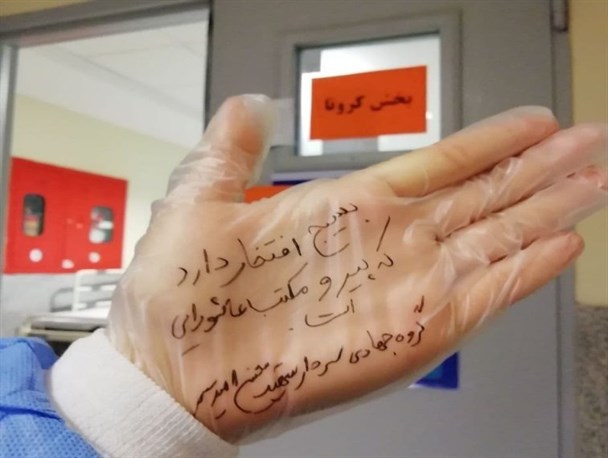 بخش کرونا
بسیج افتخار دارد
که پیرو مکتب عاشورایی
است.
گروه جهادی سردار شهید